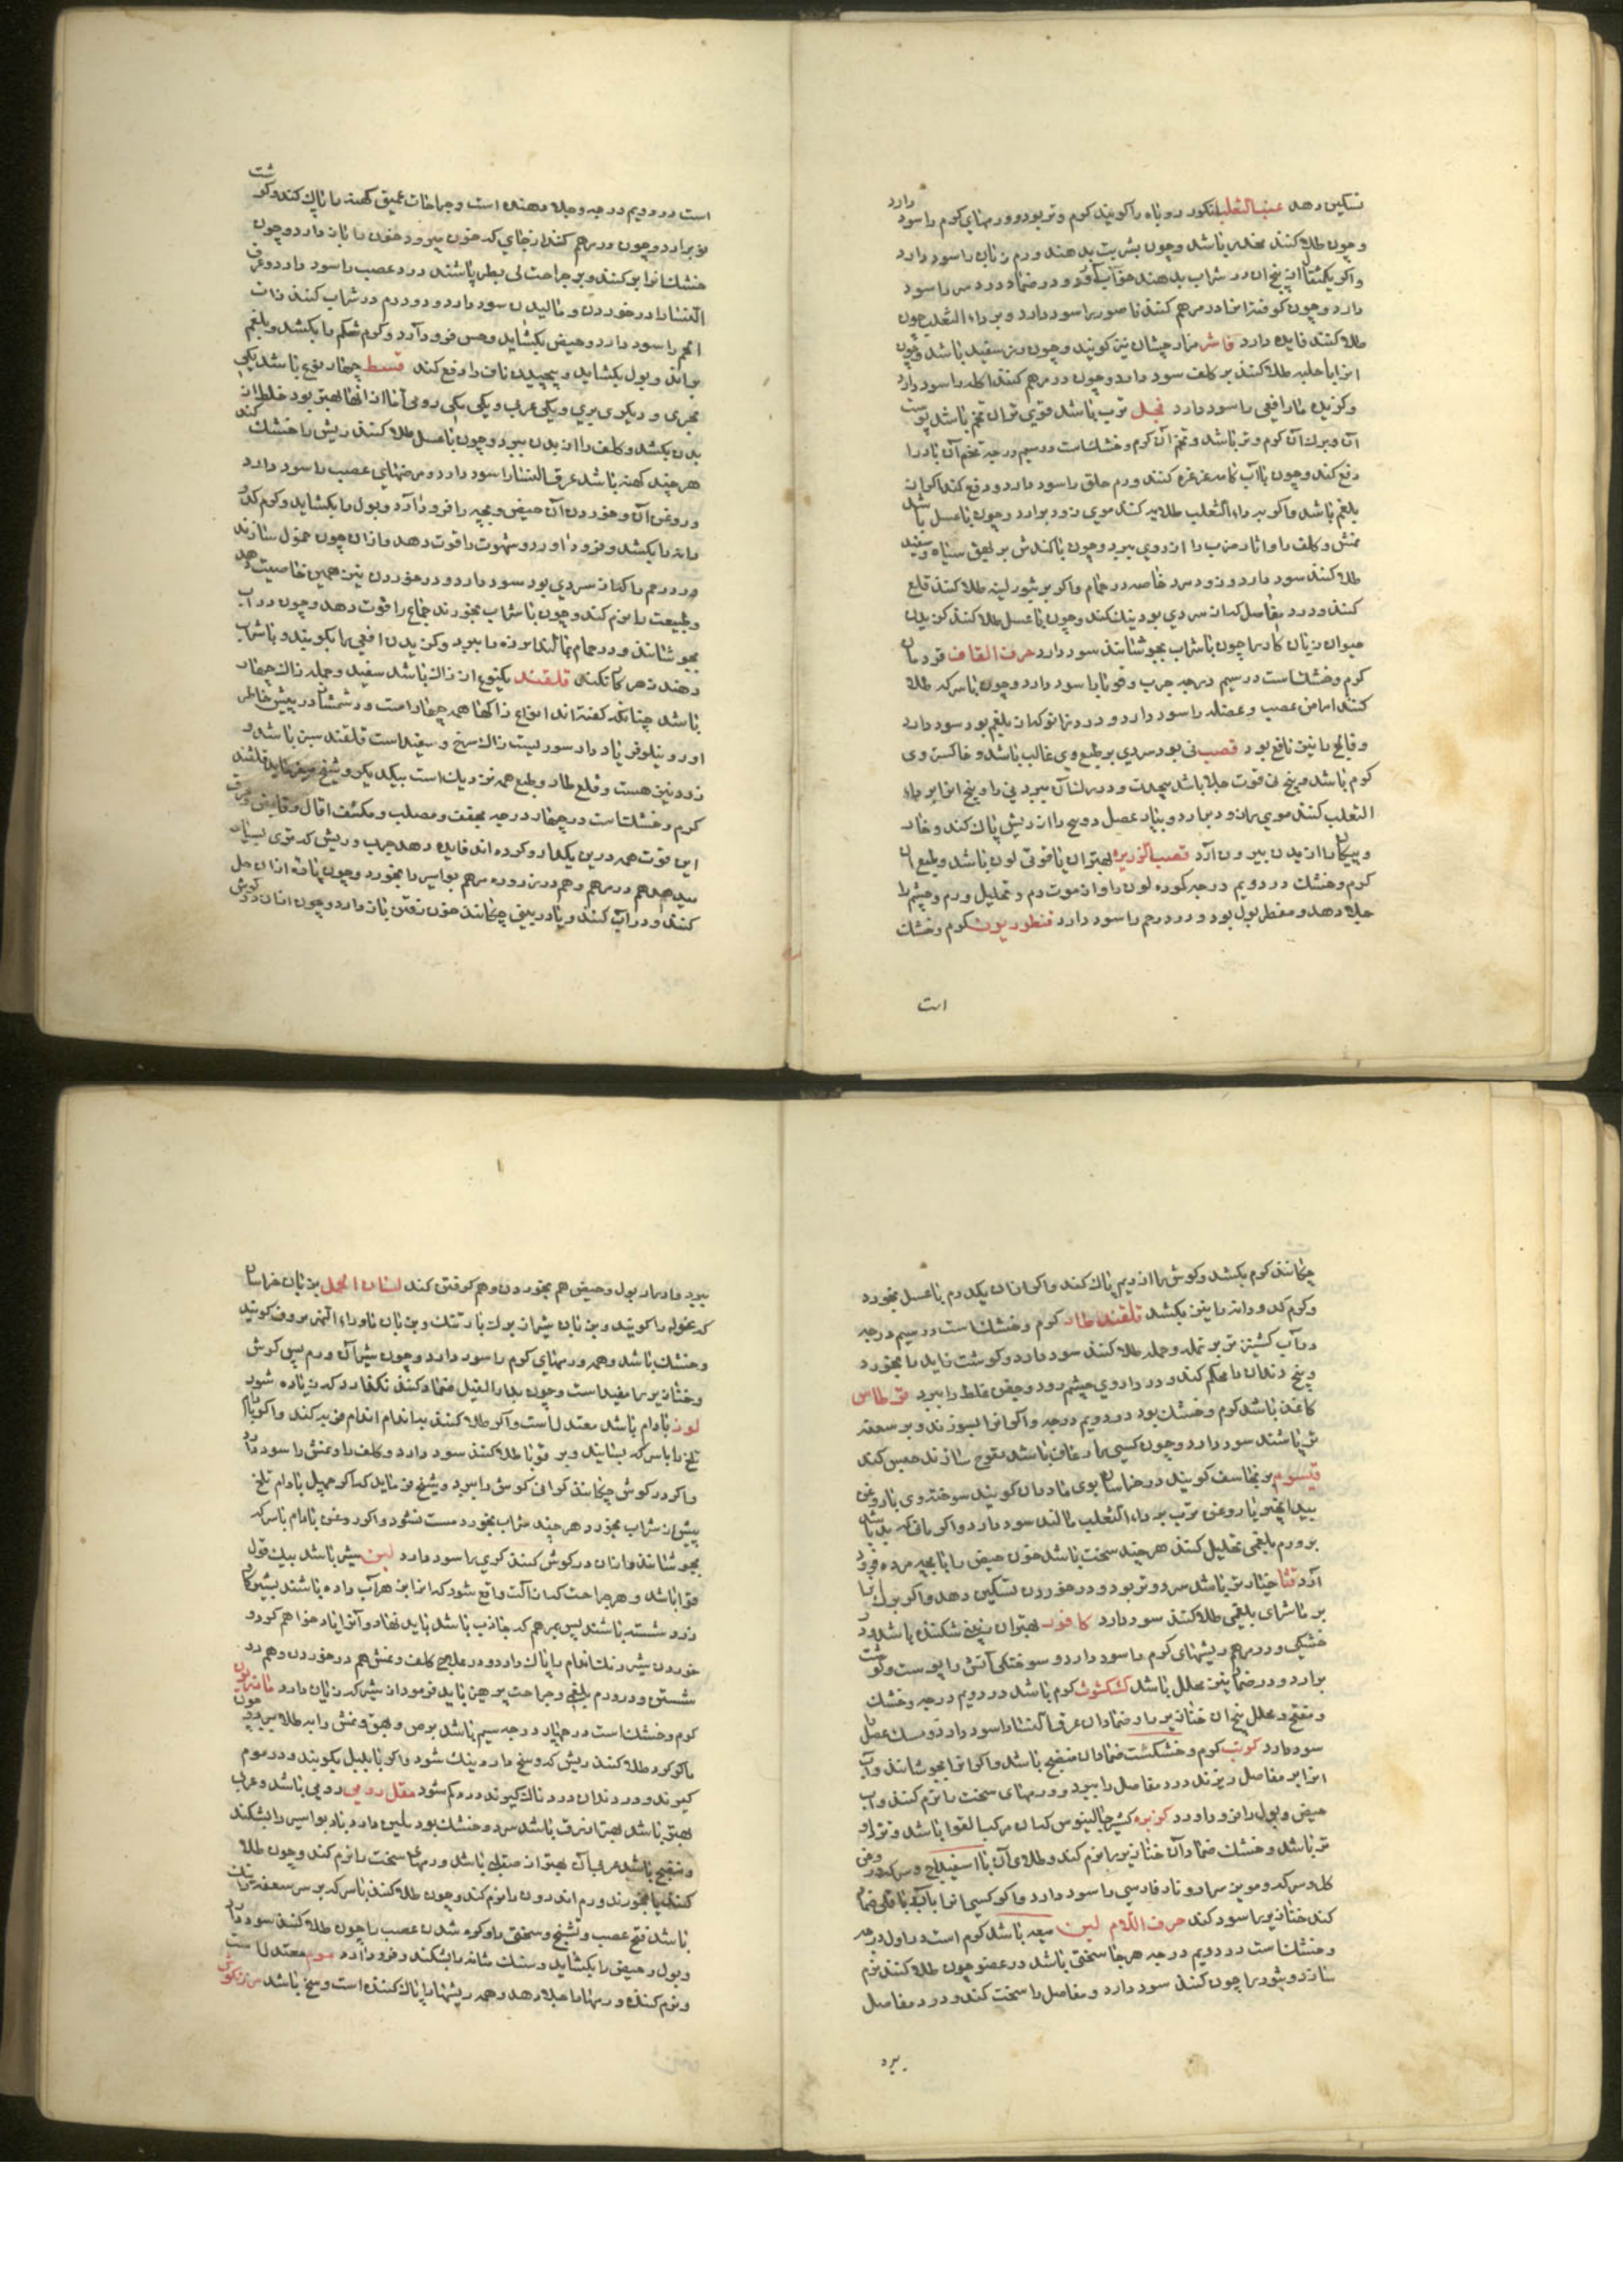 تسکین دهد عنب الثعلب انکور روباه را کویند کوم و تر بود و ورمهای کوم را سود دارد
و چون طلا کنند مخدر باشد و چون بشربت بدهند ورم زبان را سود دارد
و اکر یکمثقال از بیخ ان در شراب بدهند خواب آورد و در ضماد درد سر را سود
دارد و چون کوفته انرا در مرهم کنند ناصور را سود دارد و بر داء الثعلب چون
طلا کنند فایده دارد فاشرا هزارجشان نیز کویند و چون رز سفید باشد و چون
انرا با حلبه طلا کنند بر کلف سود دارد و چون در مرهم کنند اکله را سود دارد
و کزیدن مار افعی را سود دارد فجل ترب باشد قوی تر ان تخم باشد پوست
آن و برک آن کوم و تر باشد و تخم آن کوم و خشک است در سیم درجه تخم آن باد را
دفع کند و چون با آب کامه غرغره کنند ورم حلق را سود دارد و دفع کند اکر از
بلغم باشد و اکر بر داء الثعلب طلا کنند موی زود برارد و چون با عسل باشد
نمش و کلف را و اثار ضرب را از روی ببرد و چون با کندش بر بهق سیاه و سفید
طلا کنند سود دارد و زود سر خاصه در حمام و اکر بر بثور لبنه طلا کنند قلع
کند و درد مفاصل که از سردی بود نیک کند و چون با عسل طلا کنند کزیدن
حیوان زیان کار را چون با شراب بجوشانند سود دارد حرف القاف قردمانا
کوم و خشک است در سیم درجه جرب و قوبا را سود دارد و چون با سرکه طلا
کنند امراض عصب و عضله را سود دارد و درد زانو که از بلغم بود سود دارد
و فالج را نیز نافع بود قصب نی بود سردی بر طبع وی غالب باشد و خاکستر وی
کوم باشد و بیخ
الثعلب کنند موی براند و دیدار دو بنیاد عسل و سخ را از ریش پاک کند و خار
و پیکان را از بدن بیرون آرد قصب الذریره بهترین ان یاقوتی لون باشد و طبع ان
کوم و خشک در دویم درجه کوده لون را و از موت دم و تحلیل ورم و چشم را
جلا دهد و مقطر بول بود و درد رحم را سود دارد قنطوریون کوم و خشک
است
است در دویم درجه و جلا دهنده است و جراحات عمیق کهنه را پاک کند و کوشت
نو برارد و چون در مرهم کنند از جای که خون میرود خون را باز دارد و چون
خشک انرا بر کنند و بر جراحت لی بطر پاشند درد عصب را سود دارد و عرق
النسا را در خوردن و مالیدن سود دارد و دو درم در شراب کنند ذات
الجنب را سود دارد و حیض بکشاید و حس فرود آرد و کوم شکم را بکشد و بلغم
براند و بول بکشاید و پیچیدن ناف را دفع کند قسط چهار نوع باشد یکی
بحری و دیکری بری و یکی عربی و یکی رومی اما از انها بهتر بود خلط از
بدن بکشد و کلف را از بدن ببرد و چون با عسل طلا کنند ریش را خشک کند
هر چند کهنه باشد عرق النسا را سود دارد و مرضهای عصب را سود دارد
و روغن آن و خوردن آن حیض و بچه را فرود آرد و بول را بکشاید و کوم کدو
دانه را بکشد و فرود آورد و شهوت را قوت دهد و ازان چون حمول سازند
درد رحم را که از سردی بود سود دارد و در خوردن نیز همین خاصیت دهد
و طبیعت را نرم کند و چون با شراب بخورند جماع را قوت دهد و چون در آب
بجوشانند و در حمام بمالند لرزه را ببرد و کزیدن افعی را بکوبند و با شراب
دهند زهر کار نکند قلقند یکنوع از زاک باشد سفید و جمله زاک چهار
باشد چنانکه کفته اند انواع زاکها همه چهار است و در شش در پیش خاطر
اورد
زرد نیز هست و قلع طار و طبع همه نزدیک است بیکدیکر و شیخ میفرماید قلقند
کرم و خشک است در چهارم درجه مجفف و مصلب و مکثف اکال و قابض و محرق
این قوت همه درین یکدارو کرده اند فایده دهد جرب و ریش که تری بسیار
میدهد هم در مرهم و هم در زروره مرهم بواسیر را بخورد و چون پاره ازان حل
کنند و در آب کنند و یا در بینی چکانند خون رفتن باز دارد و چون ازان در کوش
چکانند کرم بکشد و کوش را از ریم پاک کند و اکر ازان یکدرم با عسل بخورد
و کرم کدو دانه را نیز بکشد قلقند طار کوم و خشک است در سیم درجه
در آب کشنیز تر بر نمله و جمله طلا کنند سود دارد و کوشت زاید را بخورد
و بیخ دندان را محکم کند و در داروی چشم رود و جفن غلط را ببرد قرطاس
کاغذ باشد کوم و خشک بود در دویم درجه و اکر انرا بسوزند و بر سعفه
تر پاشند سود دارد و چون کسی را رعاف باشد نفوخ سازند حبس کند
قیسوم برنجاسف کویند در خراسان بوی مادران کویند سوخته وی با روغن
بیدانجیر یا روغن ترب بر داء الثعلب مالند سود دارد
بر ورم بلغمی تحلیل کند هر چند سخت باشد خون حیض را با بچه مرده فرود
آرد قثا خیار تر باشد سرد و تر بود و در خوردن تسکین دهد و اکر برک انرا
بر ماشرای بلغمی طلا کنند سود دارد کافور بهترین ان
خشکی و در مرهم ریشهای کوم را سود دارد و سوختکی آتش را پوست و کوشت
برارد و در ضماد نیز محلل باشد کشکشوث کوم باشد در دویم درجه و خشک
و مفتح و محلل بیخ ان خنازیر را و ضماد ان عرق النسا را سود دارد
سود دارد کرنب کوم و خشکست ضماد ان منضج باشد و اکر انرا بجوشانند و آب
انرا بر مفاصل ریزند درد مفاصل را ببرد و ورمهای سخت را نرم کند و آب
حیض و بول را فرود آرد کزبره کشنیز جالینوس که ان مرکب القوا باشد و نزد او
تر باشد و خشک ضماد آن خنازیر را نرم کند و طلای آن با اسفیداج و سرکه و روغن
کل و سرکه و مویز سرد و نار فارسی را سود دارد و اکر کسی انرا با آب باقلی ضماد
کند خنازیر را سود کند حرف اللام لبن میعه باشد کوم است در اول درجه
و خشک است در دویم درجه هر جا سختی باشد در عضو چون طلا کنند نرم
سازد و بثور را چون کند سود دارد و مفاصل را سخت کند و درد مفاصل
برد
ببرد و ادرار بول و حیض هم بخوردن و هم کرفتن کند لسان الحمل بزبان خراسان
که عغوله را کویند و بزبان شیراز برک بارتنک و بزبان ماوراء النهر بروف کویند
و خشک باشد و همه ورمهای کوم را سود دارد و چون شیر آن ورم بیخ کوش
و خنازیر را مفید است و چون بداء الفیل ضماد کنند نکذارد که زیاده شود
لوز بادام باشد معتدل است و اکر طلا کنند بر اندام اندام فربه کند و اکر بادام
تلخ را با سرکه بسایند و بر قوبا طلا کنند سود دارد و کلف را و نمش را سود دارد
و اکر در کوش چکانند کرانی کوش را ببرد و شیخ میفرماید که اکر چهل بادام تلخ
پیش از شراب بخورد هر چند شراب بخورد مست نشود و اکر روغن بادام با سرکه
بجوشانند و ازان در کوش کنند کری را سود دارد لبن شیر باشد بیک قول
قوا باشد و هر جراحت که از آلت واقع شود که انرا بزهر آب داده باشند بشیر کاو
زود شسته باشند پس مرهم که جاذب باشد باید نهاد و آنرا یاد خواهم کرد و
خوردن شیر رنک اندام را پاک دارد و در علاج کلف و نمش هم در خوردن و هم در
شستن و در ورم بلغمی و جراحت پرهیز باید فرمود از شیر که زیان دارد مازریون
کوم و خشک است در چهارم درجه سیم باشد برص و بهق و نمش را به طلا ببرد چون
با کوکرد طلا کنند ریش که وسخ دارد نیک شود و اکر با پلپل بکوبند و در موم
کیرند و در دندان دردناک کیرند درد کم شود مقل رومی رومی باشد و عربی
بهتر باشد بهتر ازرق باشد سرد و خشک بود ملین دارد باد بواسیر را بشکند
و منضج باشد عربی آن بهتر از صقلبی باشد ورمهای سخت را نرم کند و چون طلا
کنند یا بخورند ورم اندرون را نرم کند و چون طلا کنند با سرکه بر سر سعفه تر نیک
باشد فتح عصب و تشنج و سختی و کره شدن عصب را چون طلا کنند سود دارد
و بول و حیض را بکشاید و سنک مثانه را بشکند و فرود آرد موم معتدل است
و نرم کننده ورمها را جلا دهد و همه ریشها را پاک کننده است و سخ باشد مرزنکوش